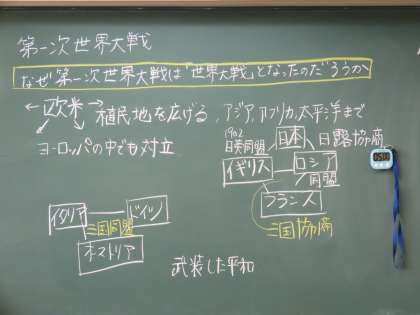 第一次世界大戦
なぜ第一次世界大戦は「世界大戦」となったのだろうか
←欧米→植民地を広げる、アジア、アフリカ、太平洋まで
ヨーロッパの中でも対立
1902
日英同盟
日本
日露協商
イギリス
ロシア
同盟
フランス
三国協商
イタリア
ドイツ
三国同盟
オーストリア
武装した平和